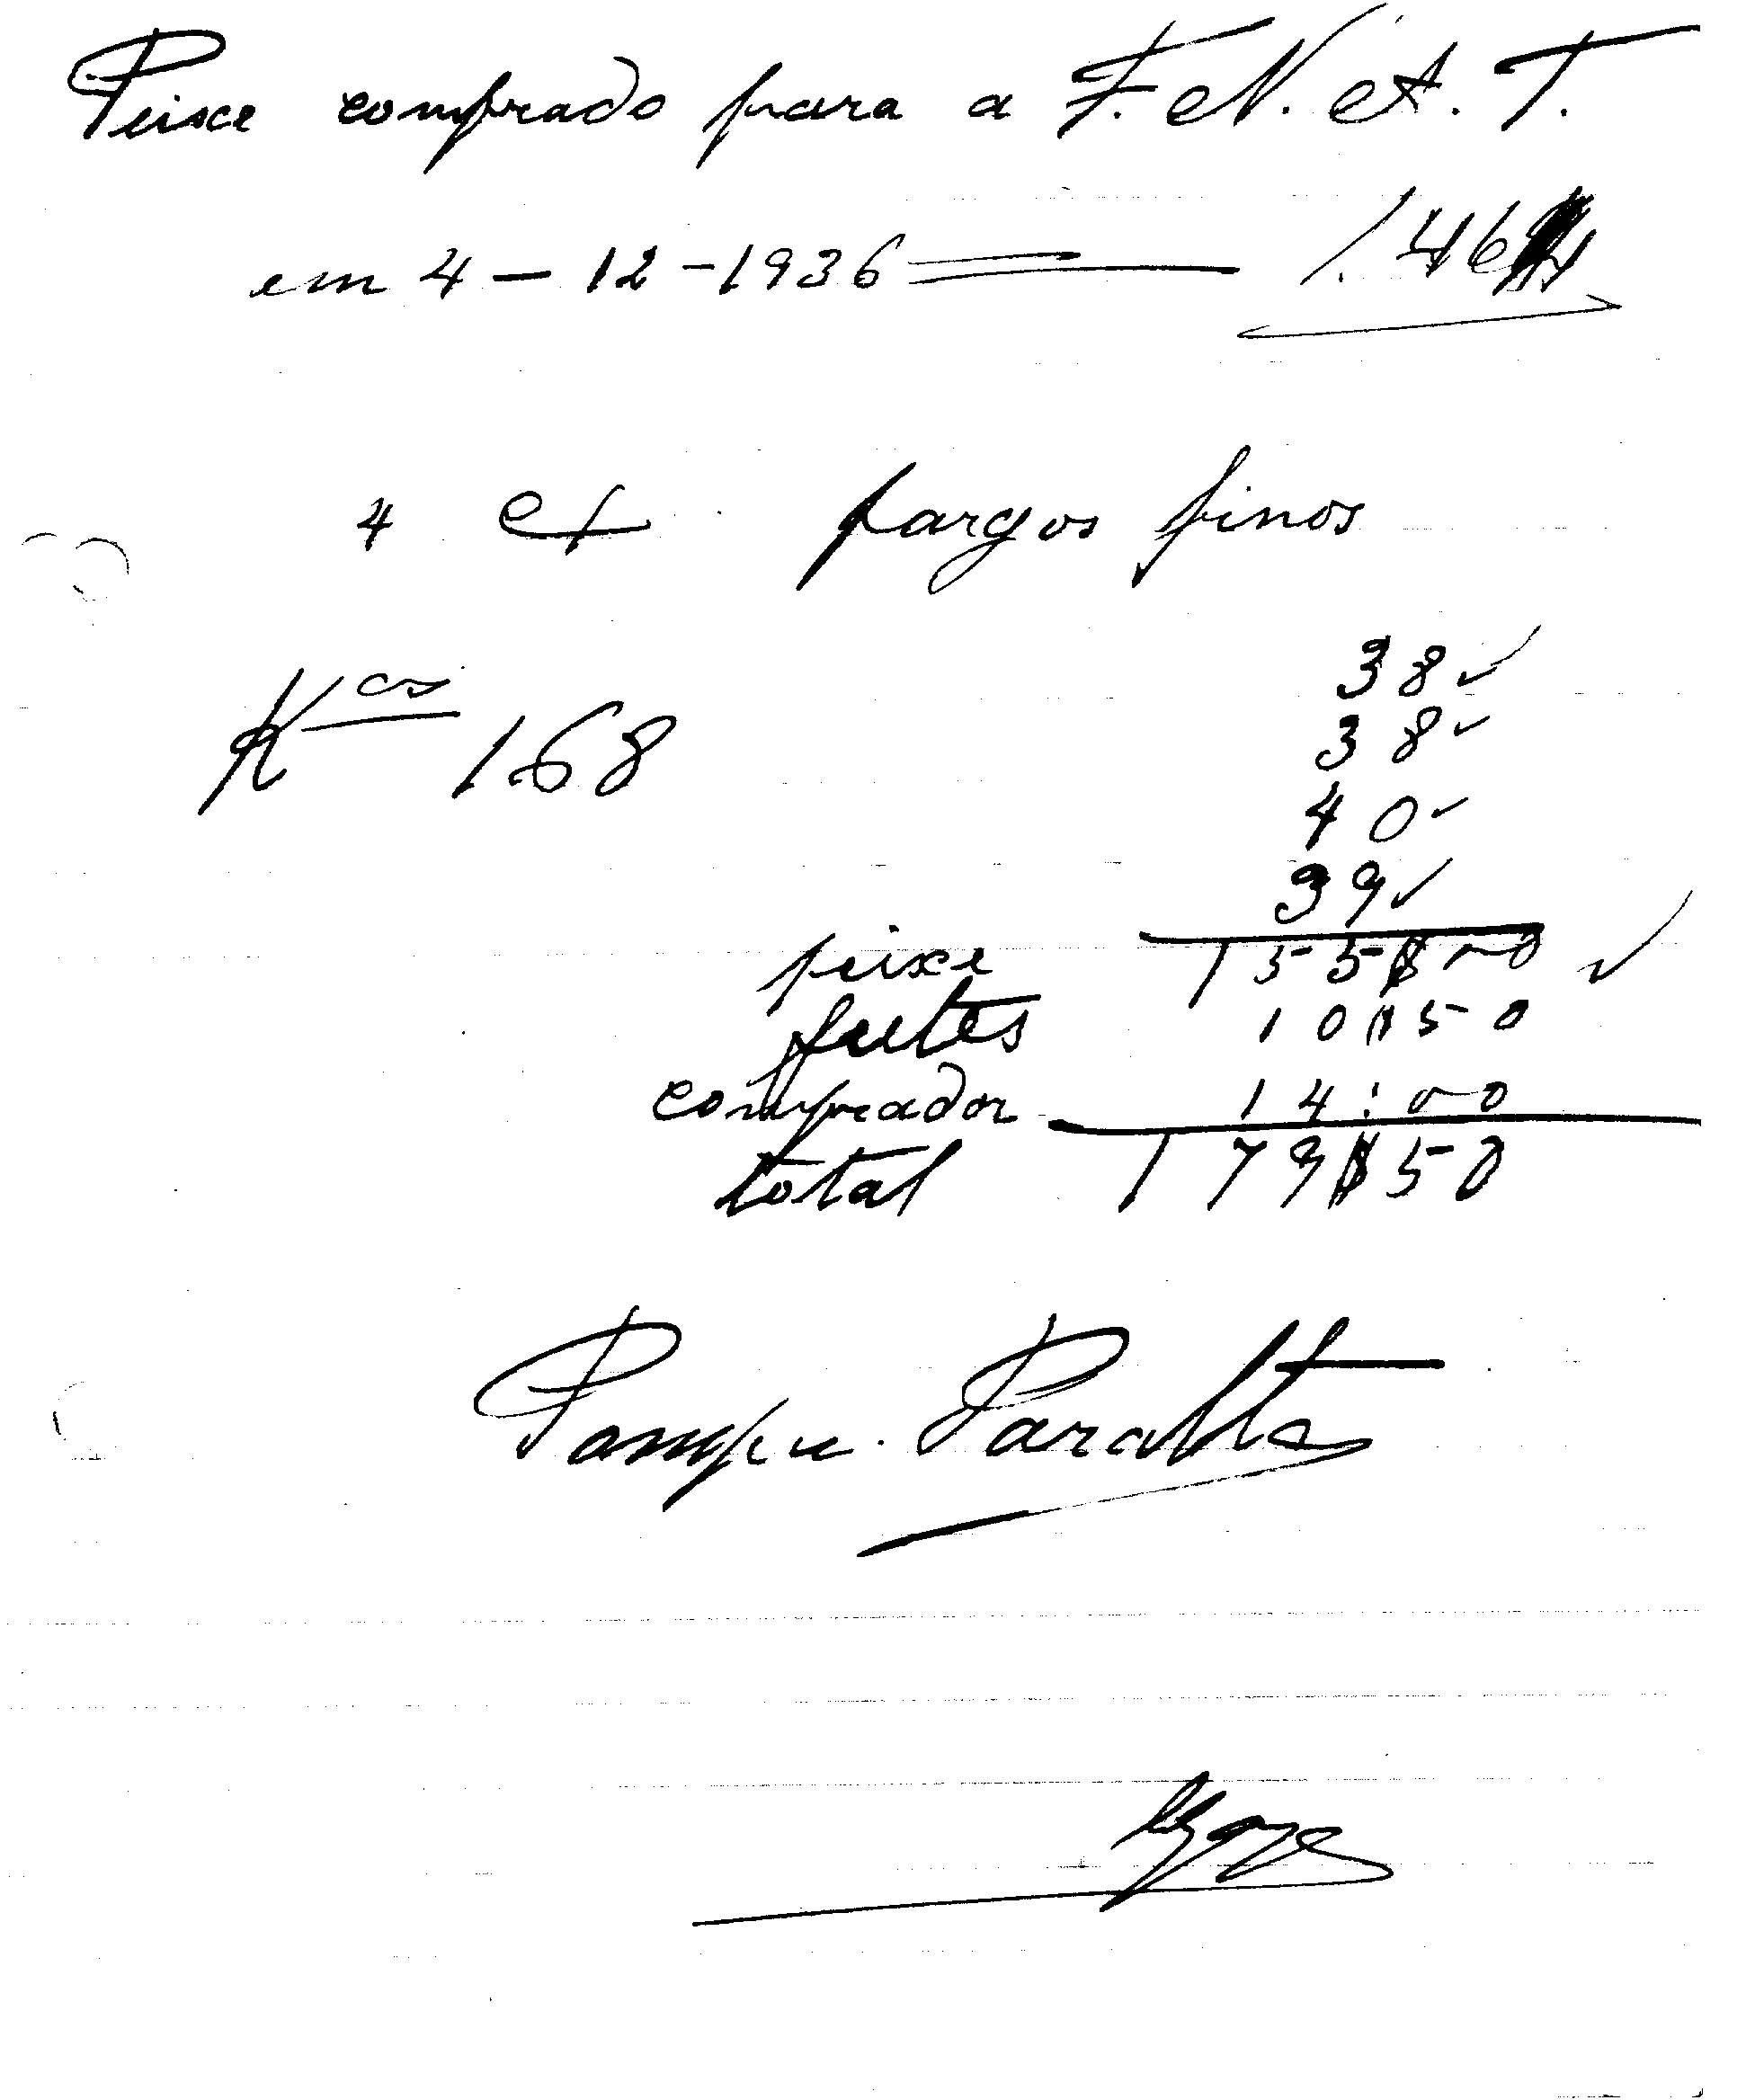 Peixe comprado para a F. N. A. T.
em 4 - 12 - 1936 1.46
4 pargos finos
38
K.os 168
38
40
39
peixe 155$00
fretes 10$50
comprador 14:00
total 179$50
Paralta